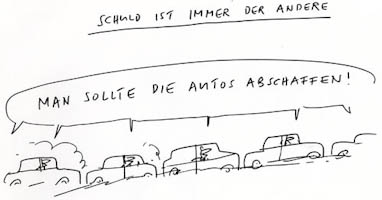 SCHULD IST IMMER DER ANDERE
MAN SOLLTE DIE AUTOS ABSCHAFFEN!